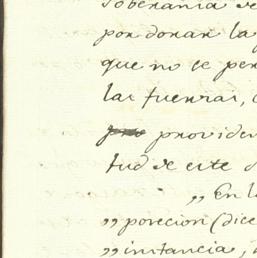 soberanía de
por donar la
que no se per
las fuerzas, 
providen
tud de este
„ En l
„ porecion (dice
„ instancia,